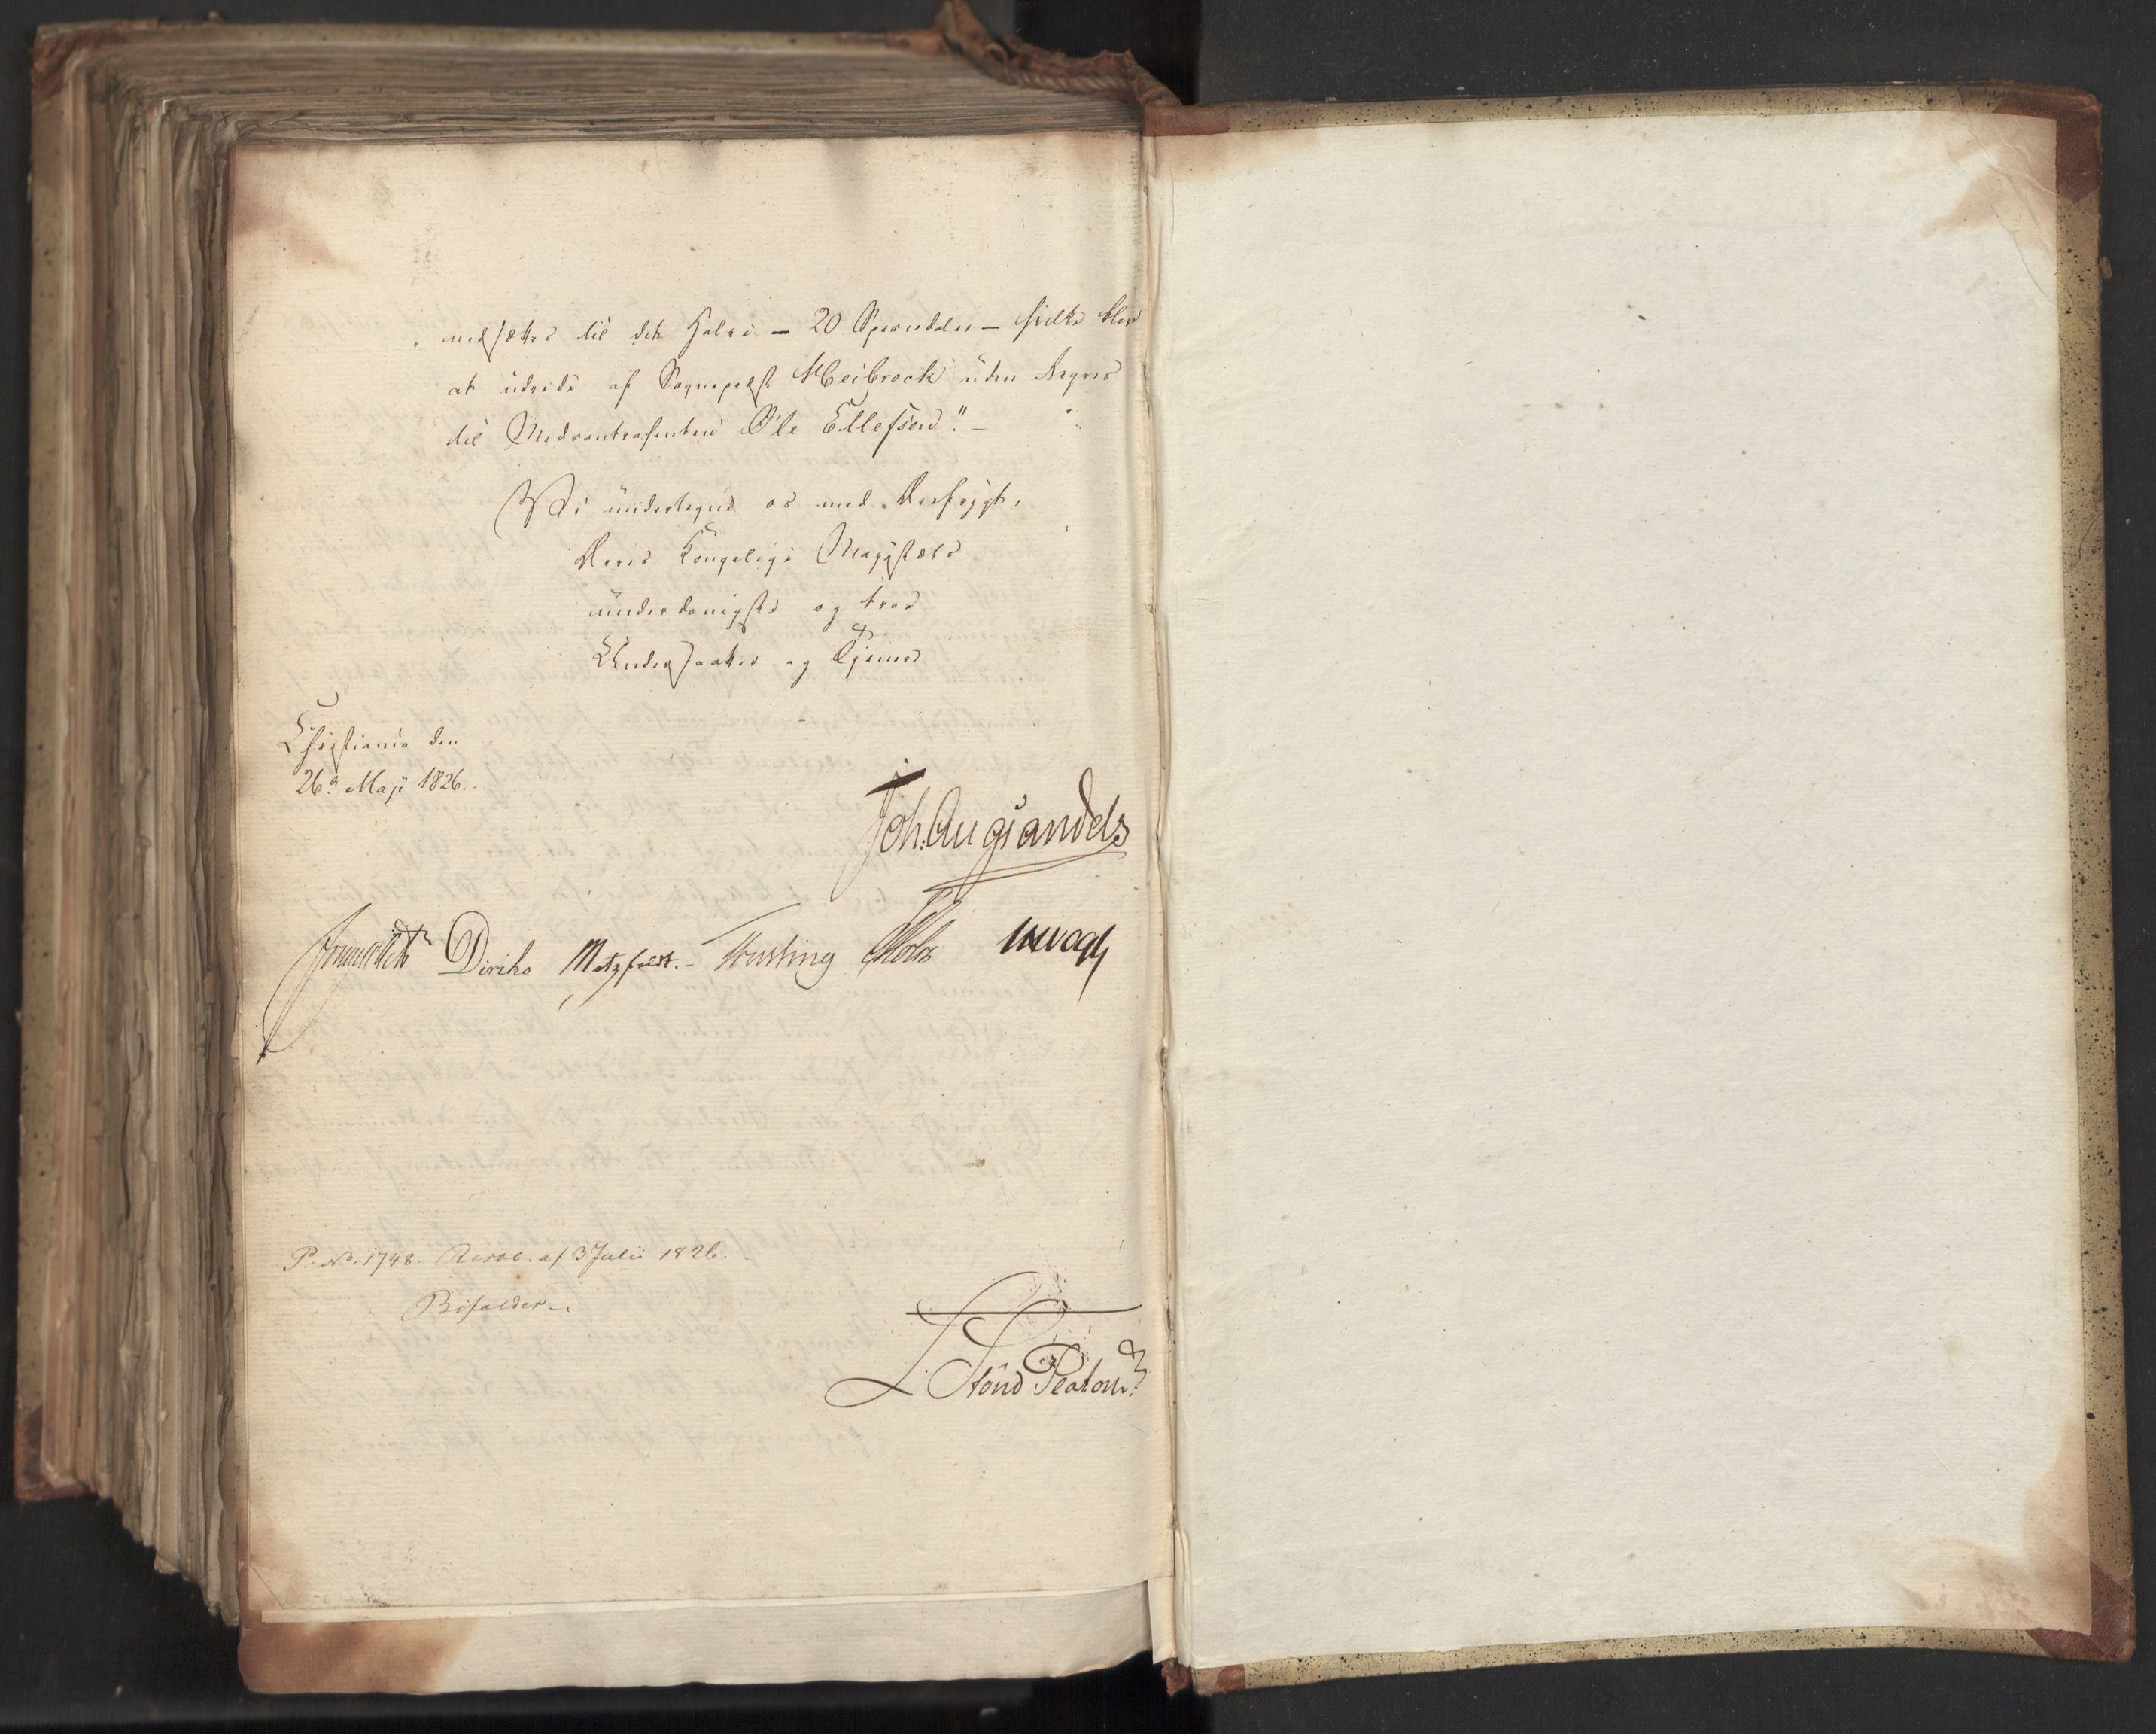 nedsættes til det Halve – 20 Speciedaler – hvilke blive
at udrede af Sognepræst Meibrock uden Regres
til Medcontrahenten Ole Ellefsen." –
Vi undertegne os med Ærefrygt,
Deres Kongelige Majestæts
underdanigste og troe
Undersaatter og Tjenere
Christiania den
26de Maji 1826.
Joh: Aug Sandels
Diriks Motzfeldt. – Treschow Holst
P: No. 1748. Resol. af 3 Julii 1826.
Bifalder.
Stoud Platou